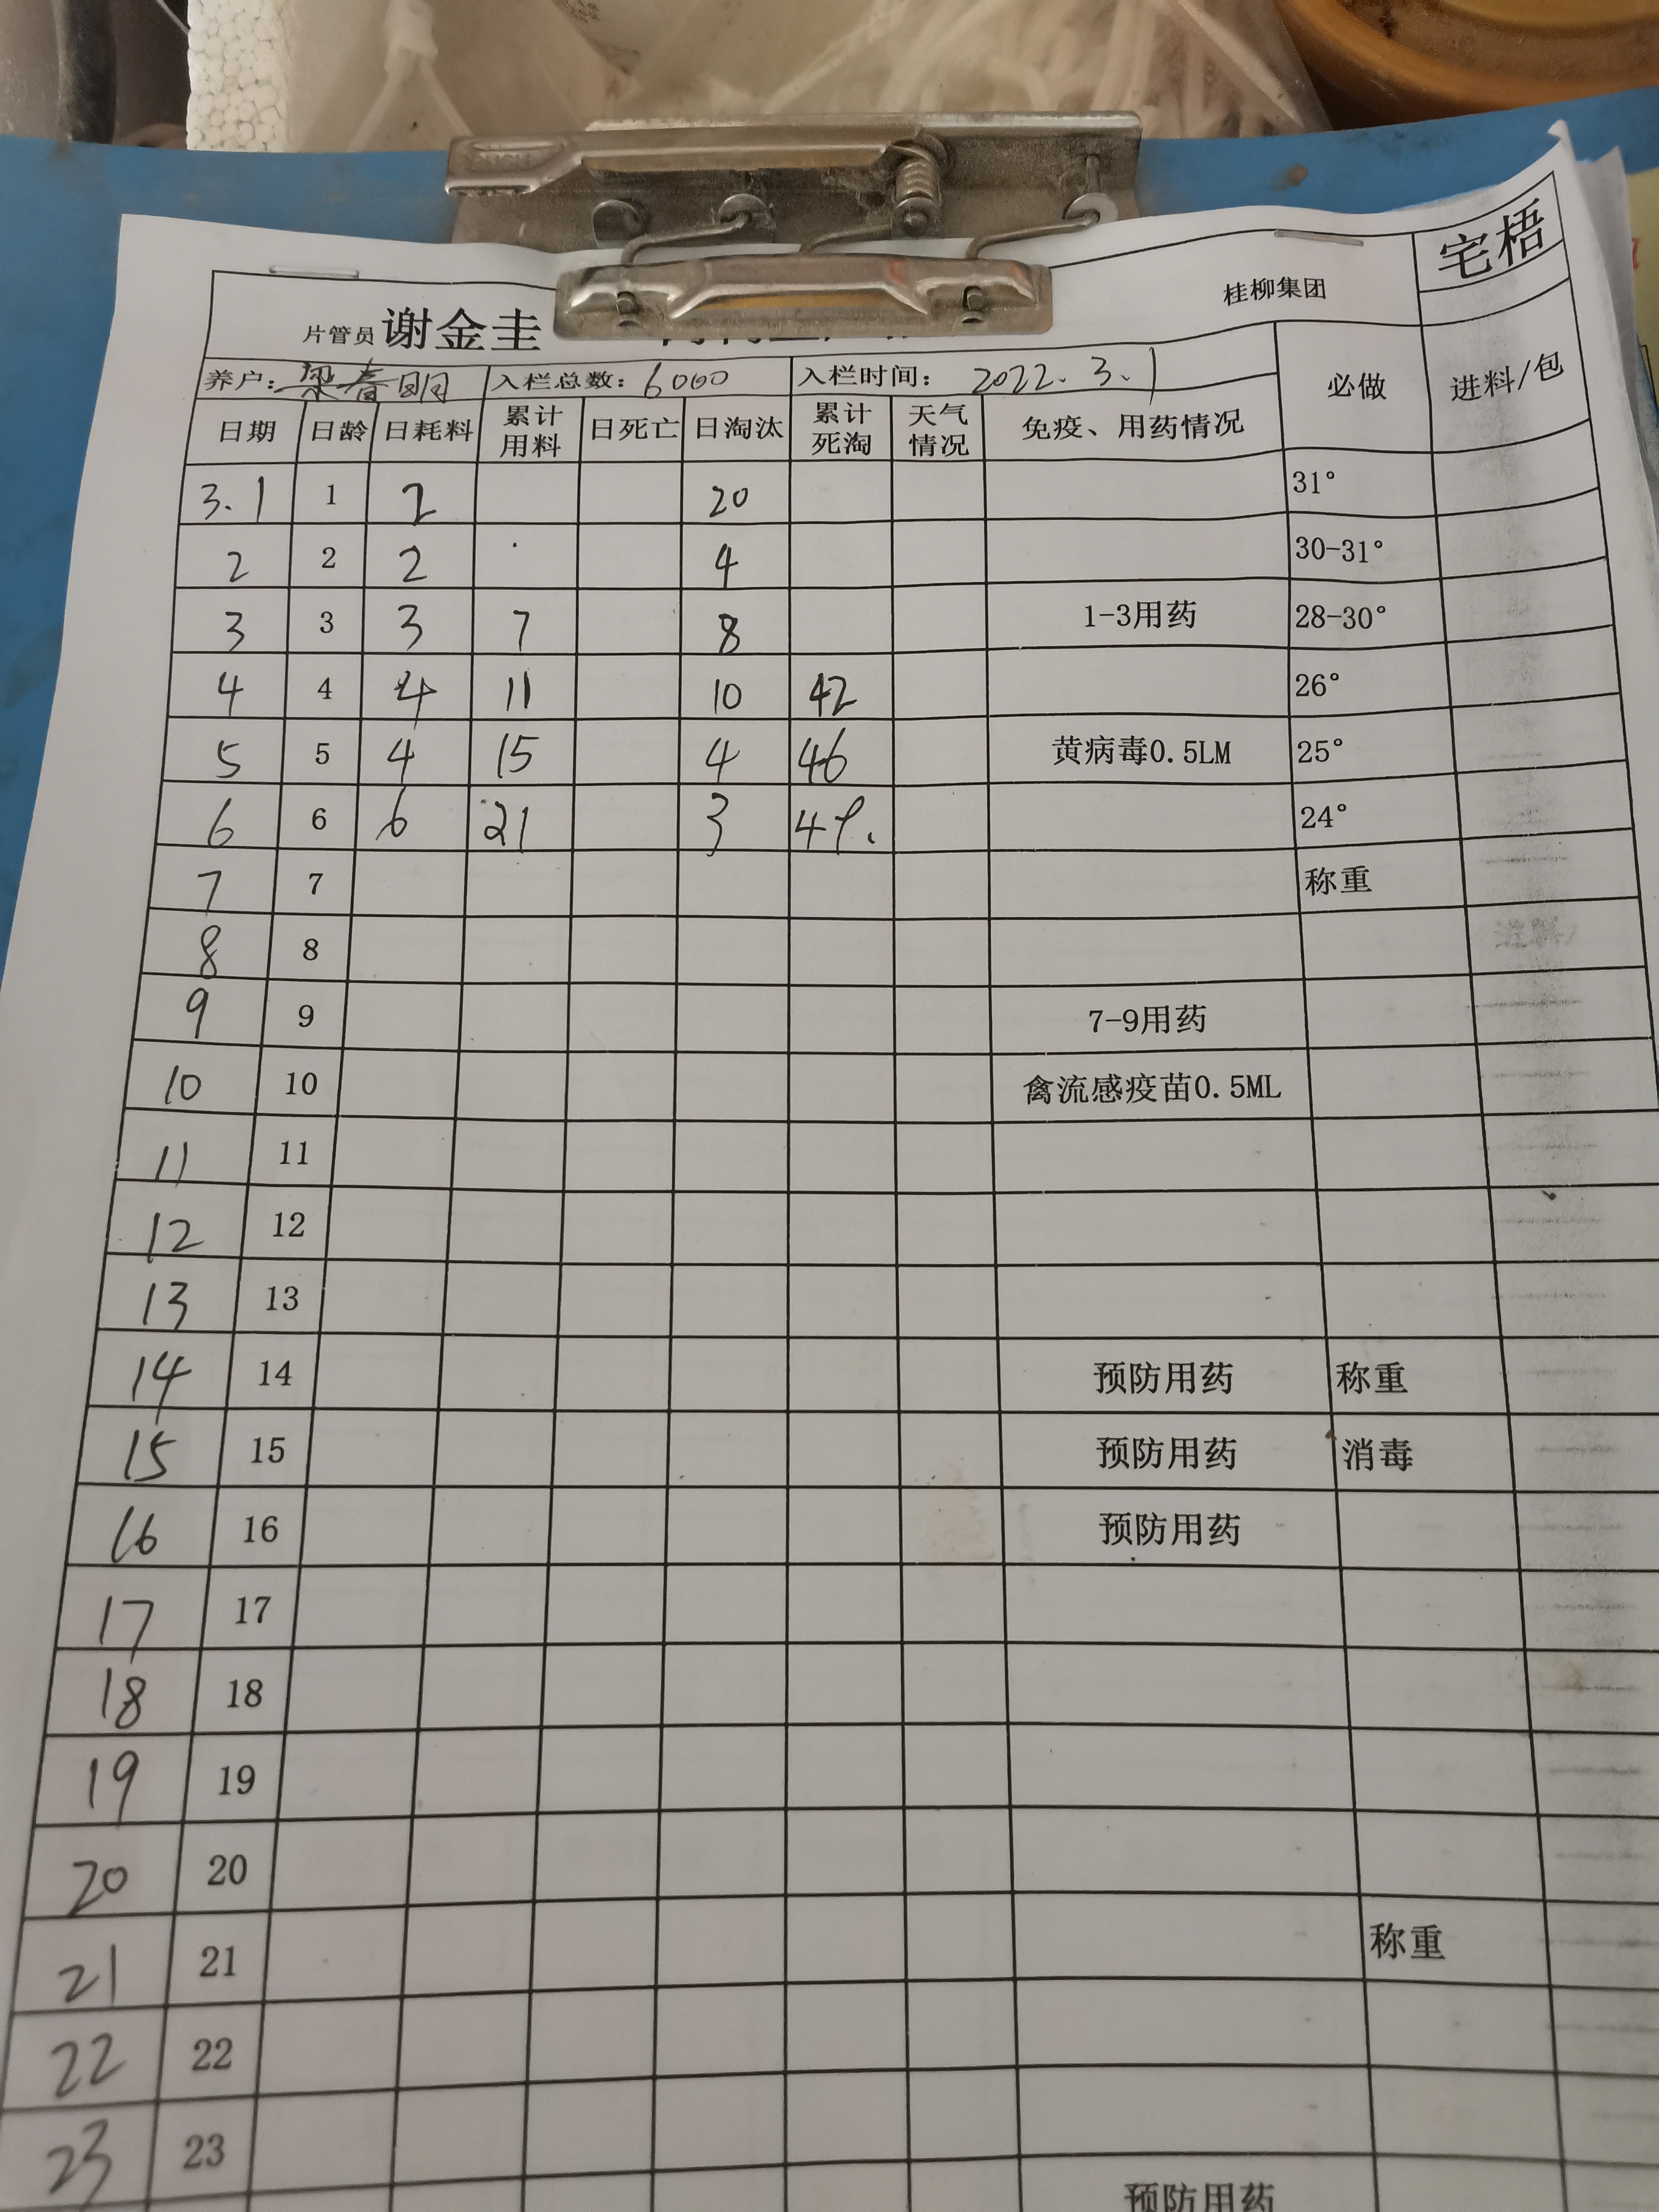 宅梧
桂柳集团
片管员 谢金圭
养户: 梁春明 入栏总数: 6000 入栏时间: 2022.3.1 必做 进料/包
日期 日龄 日耗料 累计用料 日死亡 日淘汰 累计死淘 天气情况 免疫、用药情况
3.1 1 2 20 31°
2 2 2 4 30-31°
3 3 3 7 8 1-3用药 28-30°
4 4 4 11 10 42 26°
5 5 4 15 4 46 黄病毒0.5LM 25°
6 6 6 21 3 49. 24°
7 7 称重
8 8
9 9 7-9用药
10 10 禽流感疫苗0.5ML
11 11
12 12
13 13
14 14 预防用药 称重
15 15 预防用药 消毒
16 16 预防用药
17 17
18 18
19 19
20 20
21 21 称重
22 22
23 23
预防用药